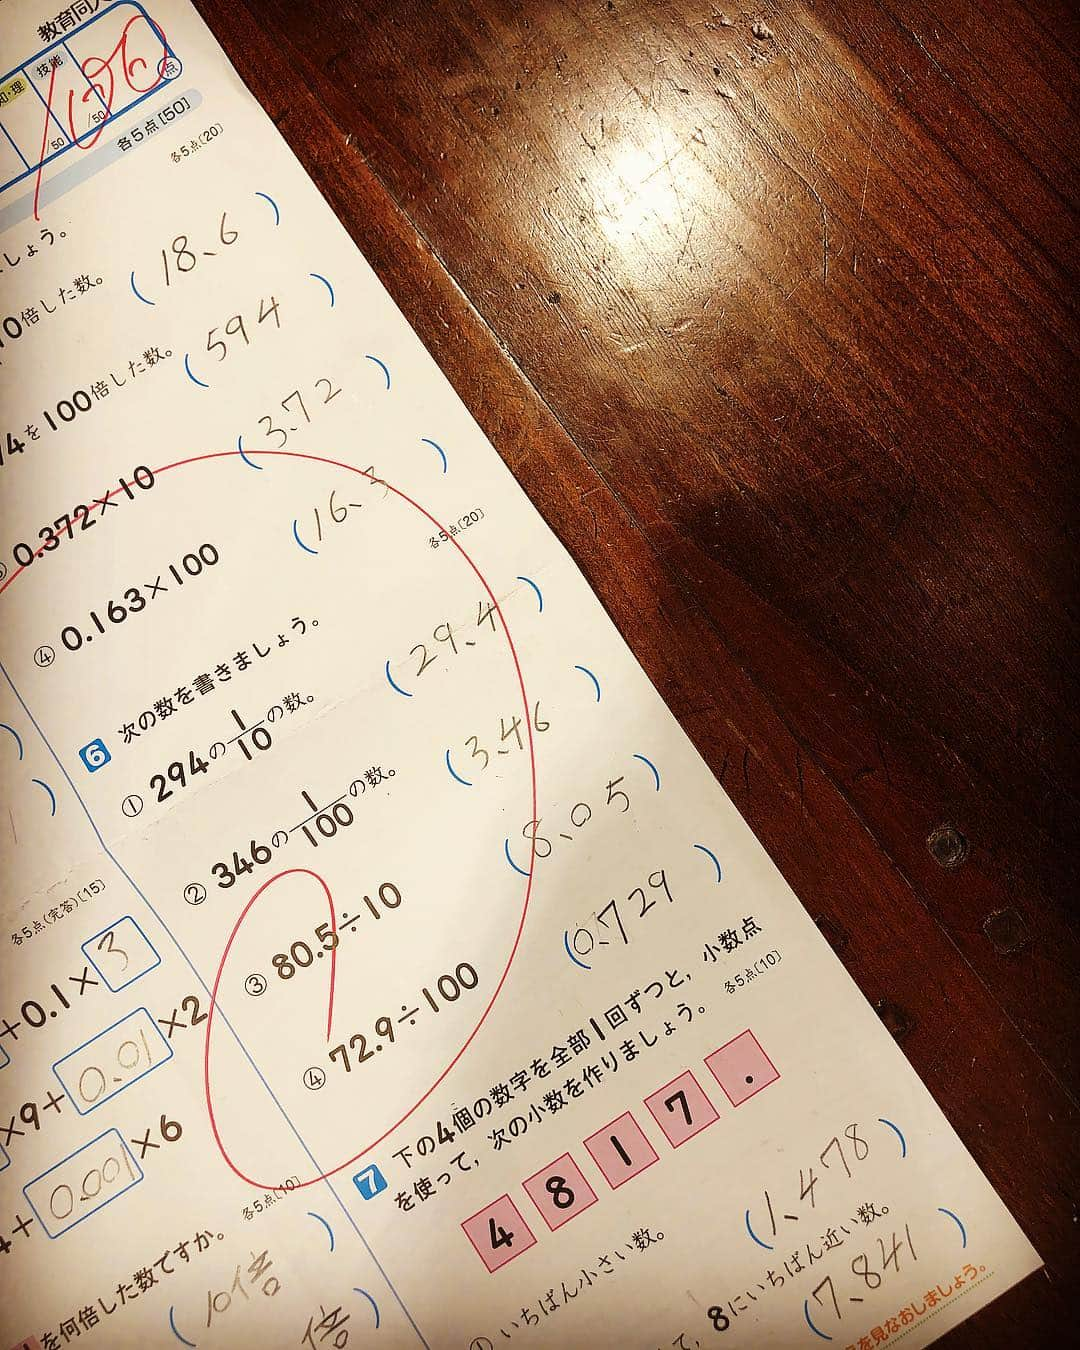 教育同人
知・理
技能
100
点
/50
/50
各5点[50]
各5点〔20〕
しょう。
10倍した数。
(18、6)
4を100倍した数。
(594)
0.372×10
(3.72)
④ 0.163×100
(16、3)
各5点〔20〕
6 次の数を書きましょう。
① 294の1/10の数。
(29、4)
② 346の1/100の数。
(3、46)
③ 80.5÷10
(8、05)
④ 72.9÷100
(0、729)
各5点〔10〕
7 下の4個の数字を全部1回ずつと,小数点
を使って,次の小数を作りましょう。
4 8 1 7 .
いちばん小さい数。
(1、478)
8にいちばん近い数。
(7、841)
を見なおしましょう。
各5点(完答)〔15〕
+0.1×3
×9+0.01×2
4+0.001×6
各5点〔10〕
を何倍した数ですか。
(10倍)
倍)